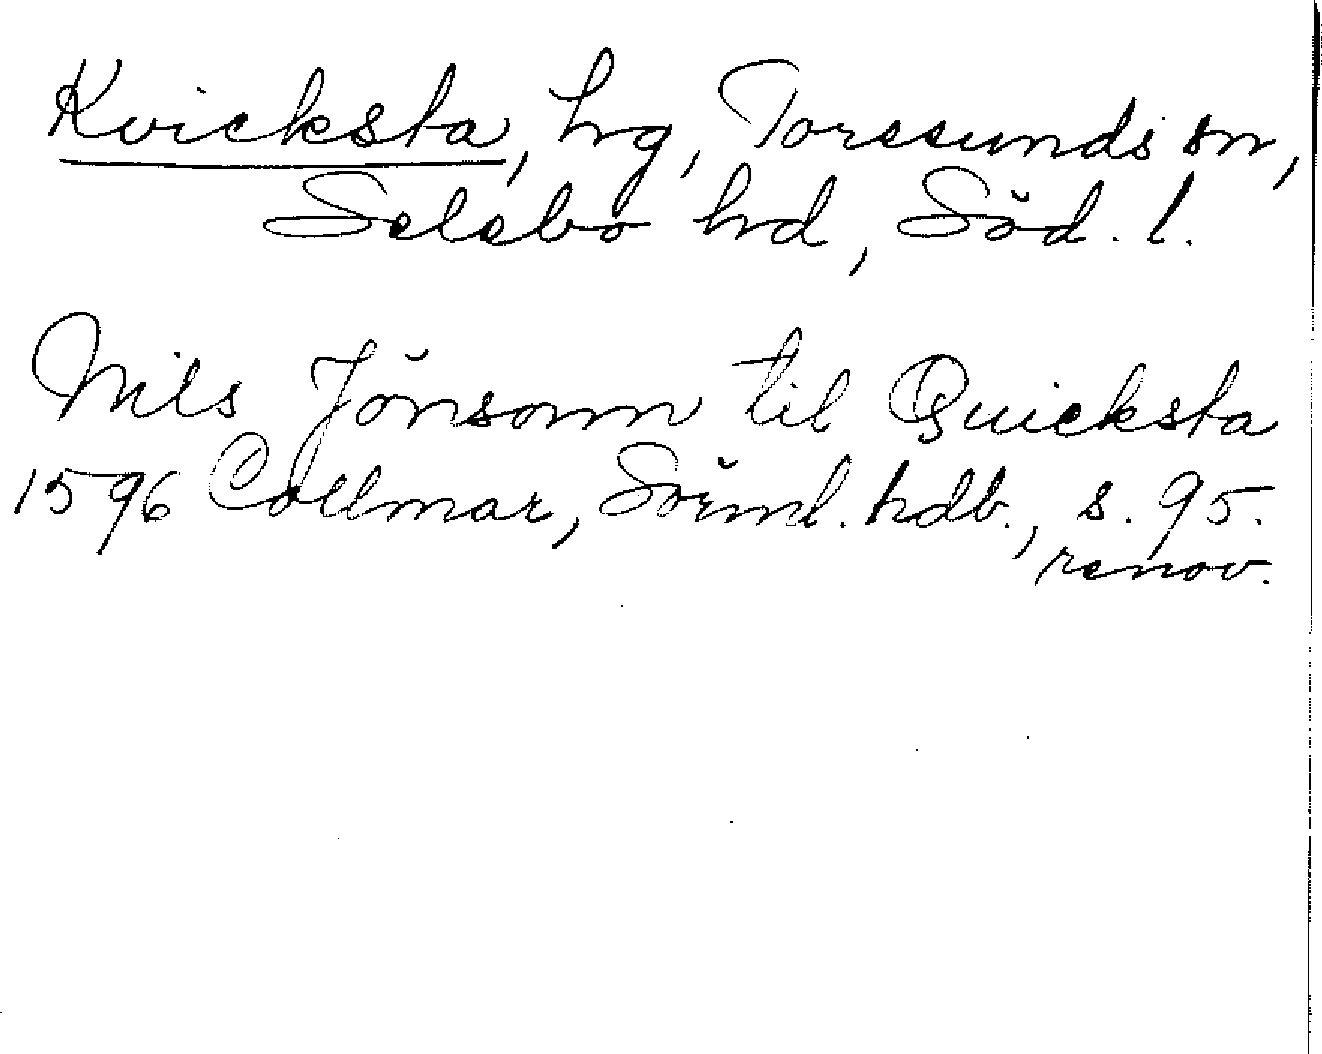 Kvicksta, hrg, Toresunds sn,
Selebo hrd, Söd. l.
Nils Jönsonn til Quicksta
1596 Collmar, Sörml. hdb., s. 95.
renov.